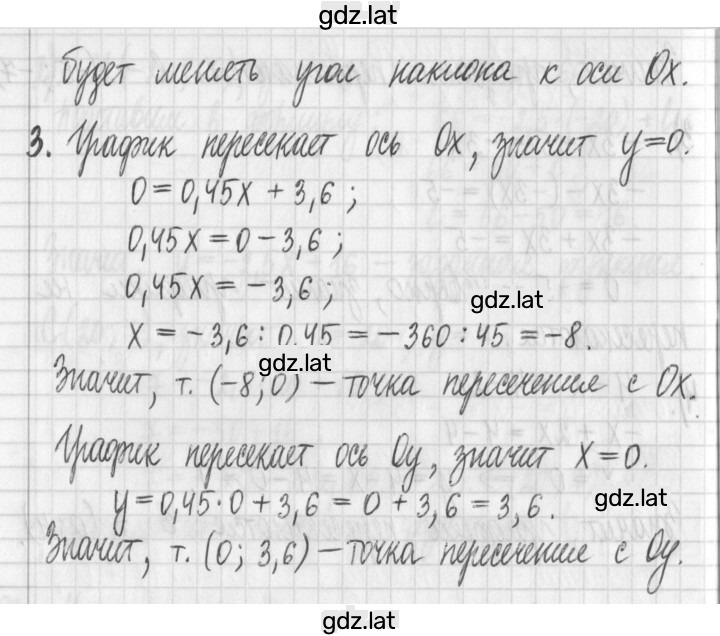 gdz.lat
будет менять угол наклона к оси Ox.
3. График пересекает ось Ox, значит y=0.
0 = 0,45x + 3,6 ;
0,45x = 0 - 3,6 ;
0,45x = -3,6 ;
gdz.lat
x = -3,6 : 0,45 = -360 : 45 = -8.
gdz.lat
Значит, т. (-8; 0) — точка пересечения с Ox.
График пересекает ось Oy, значит x=0.
y = 0,45·0 + 3,6 = 0 + 3,6 = 3,6.
gdz.lat
Значит, т. (0; 3,6) — точка пересечение с Oy.
gdz.lat